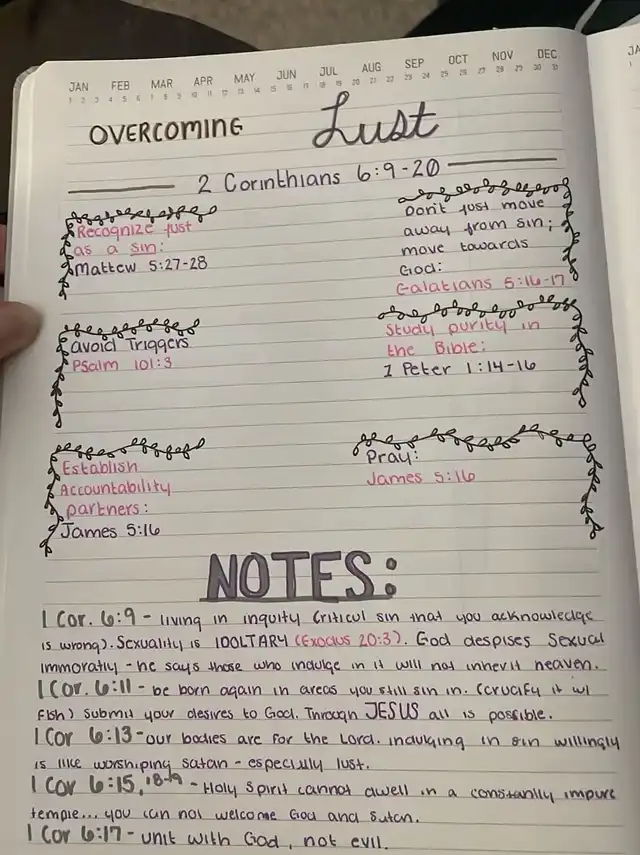 JAN FEB MAR APR MAY JUN JUL AUG SEP OCT NOV DEC
OVERCOMING Lust
2 Corinthians 6:9-20
Recognize just
as a sin:
Mattew 5:27-28
Don't just move
away from sin;
move towards
God:
Galatians 5:16-17
avoid Triggers
Psalm 101:3
Study purity in
the Bible:
1 Peter 1:14-16
Establish
Accountability
partners:
James 5:16
Pray:
James 5:16
NOTES:
1 Cor. 6:9 - living in inquity (critical sin that you acknowledge
is wrong). Sexuality is IDOLTARY (Exodus 20:3). God despises Sexual
immoratiy - he says those who indulge in it will not inherit heaven.
1 Cor. 6:11 - be born again in areas you still sin in. (crucify it w/
flsh) submit your desires to God. Through JESUS all is possible.
1 Cor 6:13 - our bodies are for the Lord. indulging in sin willingly
is like worshiping satan - especially lust.
1 Cor 6:15, 18-19 - Holy Spirit cannot dwell in a constantly impure
temple... you can not welcome God and Satan.
1 Cor 6:17 - unit with God, not evil.